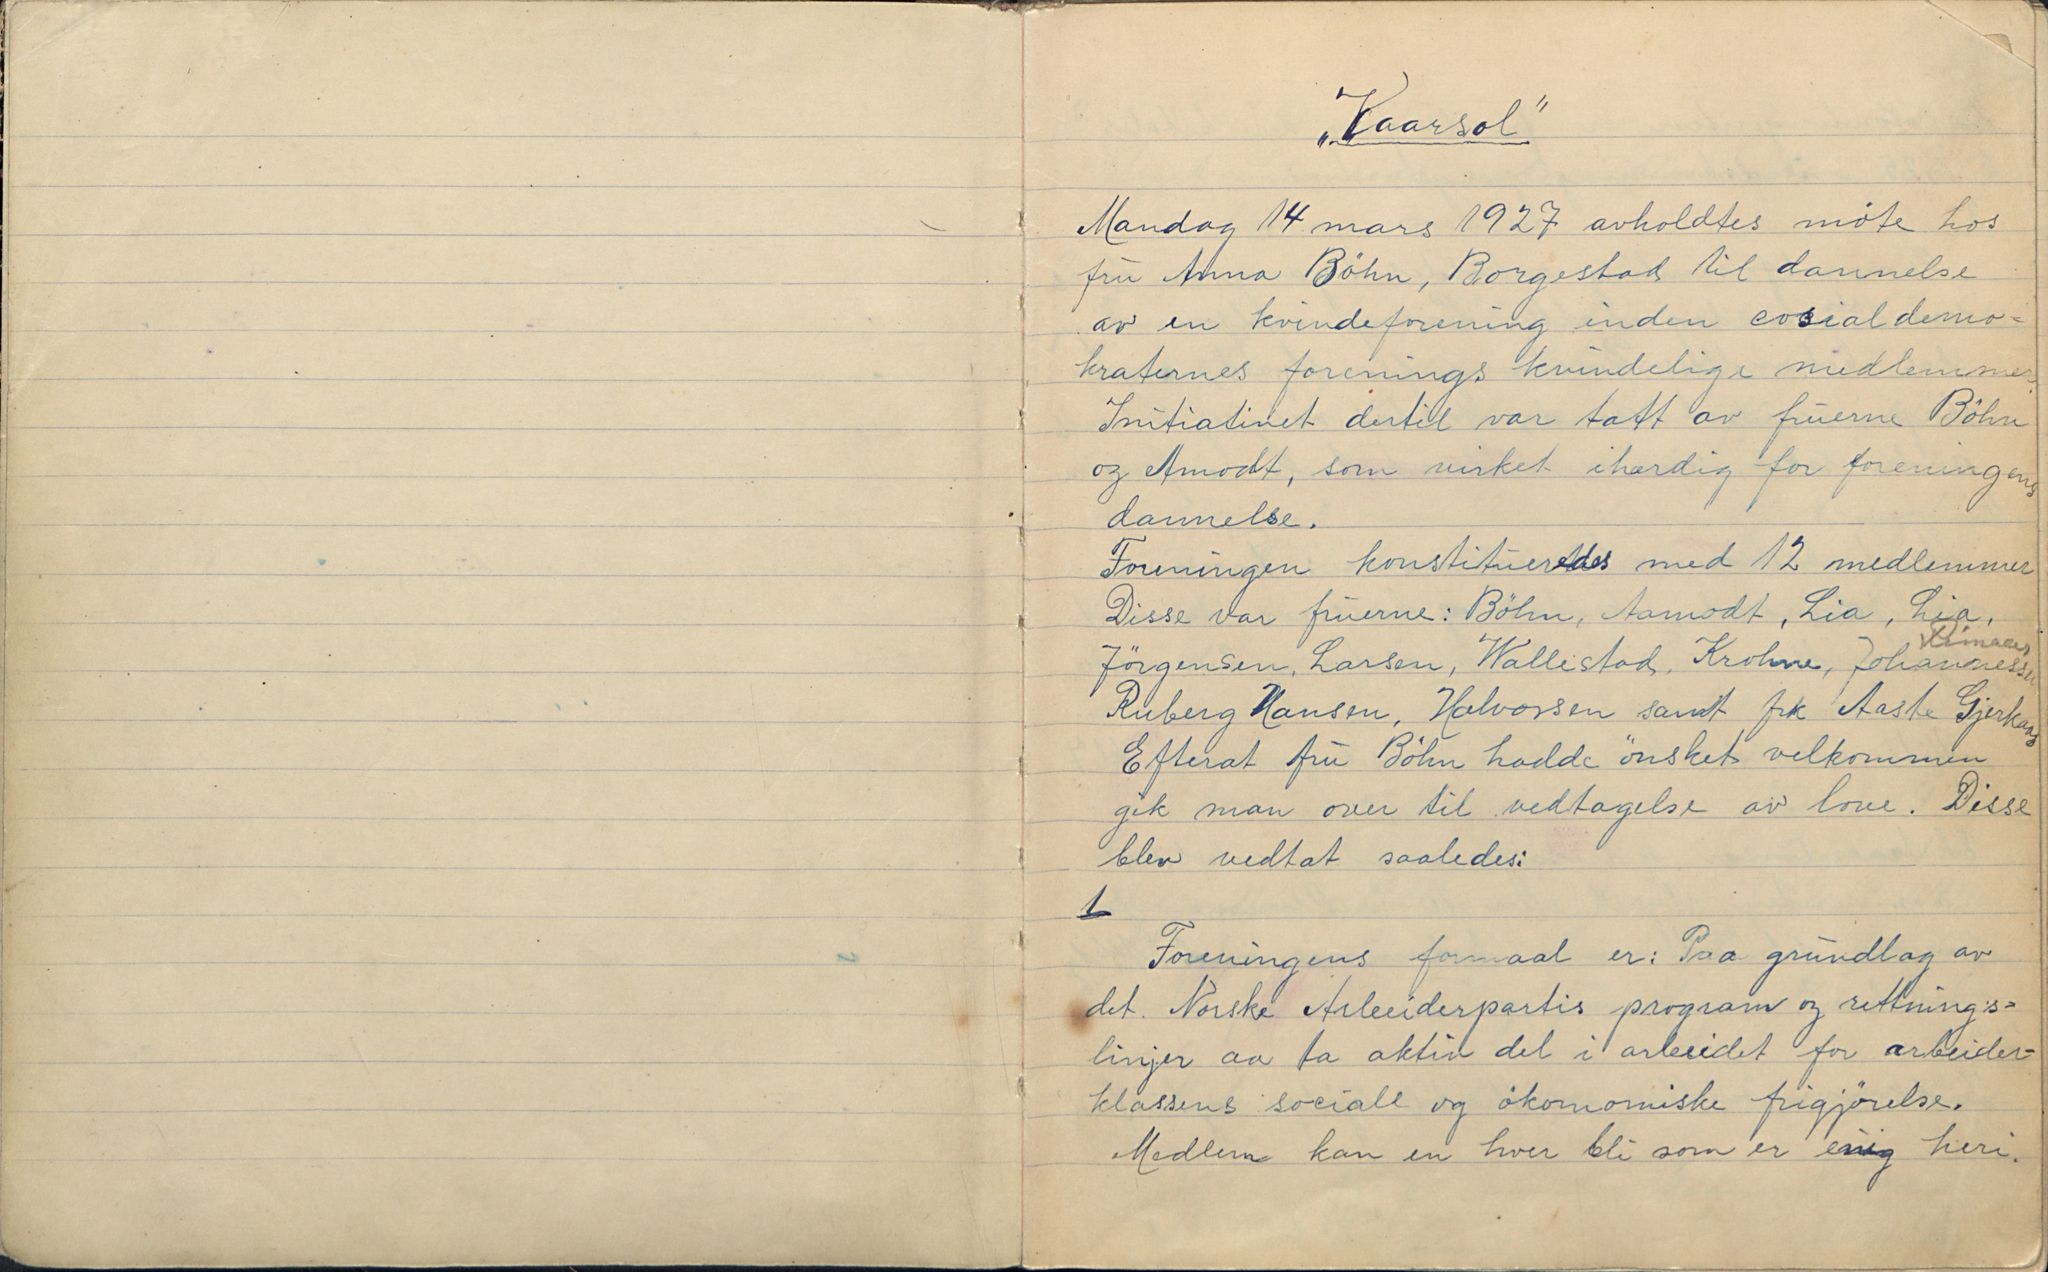 „Vaarsol"
Mandag 14 mars 1927 avholdtes möte hos
fru Anna Böhn, Borgestad til dannelse
av en kvindeforening inden cosialdemo-
kraternes forenings kvindelige medlemmer.
Initiativet dertil var tatt av fruerne Böhn
og Amodt, som virket iherdig for foreningens
dannelse.
Foreningen konstitueredes med 12 medlemmer
Disse var fruerne: Böhn, Aamodt, Lia, Lia,
Jörgensen, Larsen, Wallestad, Krohne, Johannessen
Ruberg Hansen, Halvorsen samt frk Aaste Gjerkaas
Efterat fru Böhn hadde önsket velkommen
gik man over til vedtagelse av love. Disse
blev vedtat saaledes:
1
Foreningens formaal er: Paa grundlag av
det Norske Arbeiderpartis program og rettnings-
linjer aa ta aktiv del i arbeidet for arbeider-
klassens sociale og ökonomiske frigjörelse.
Medlem kan en hver bli som er enig heri.